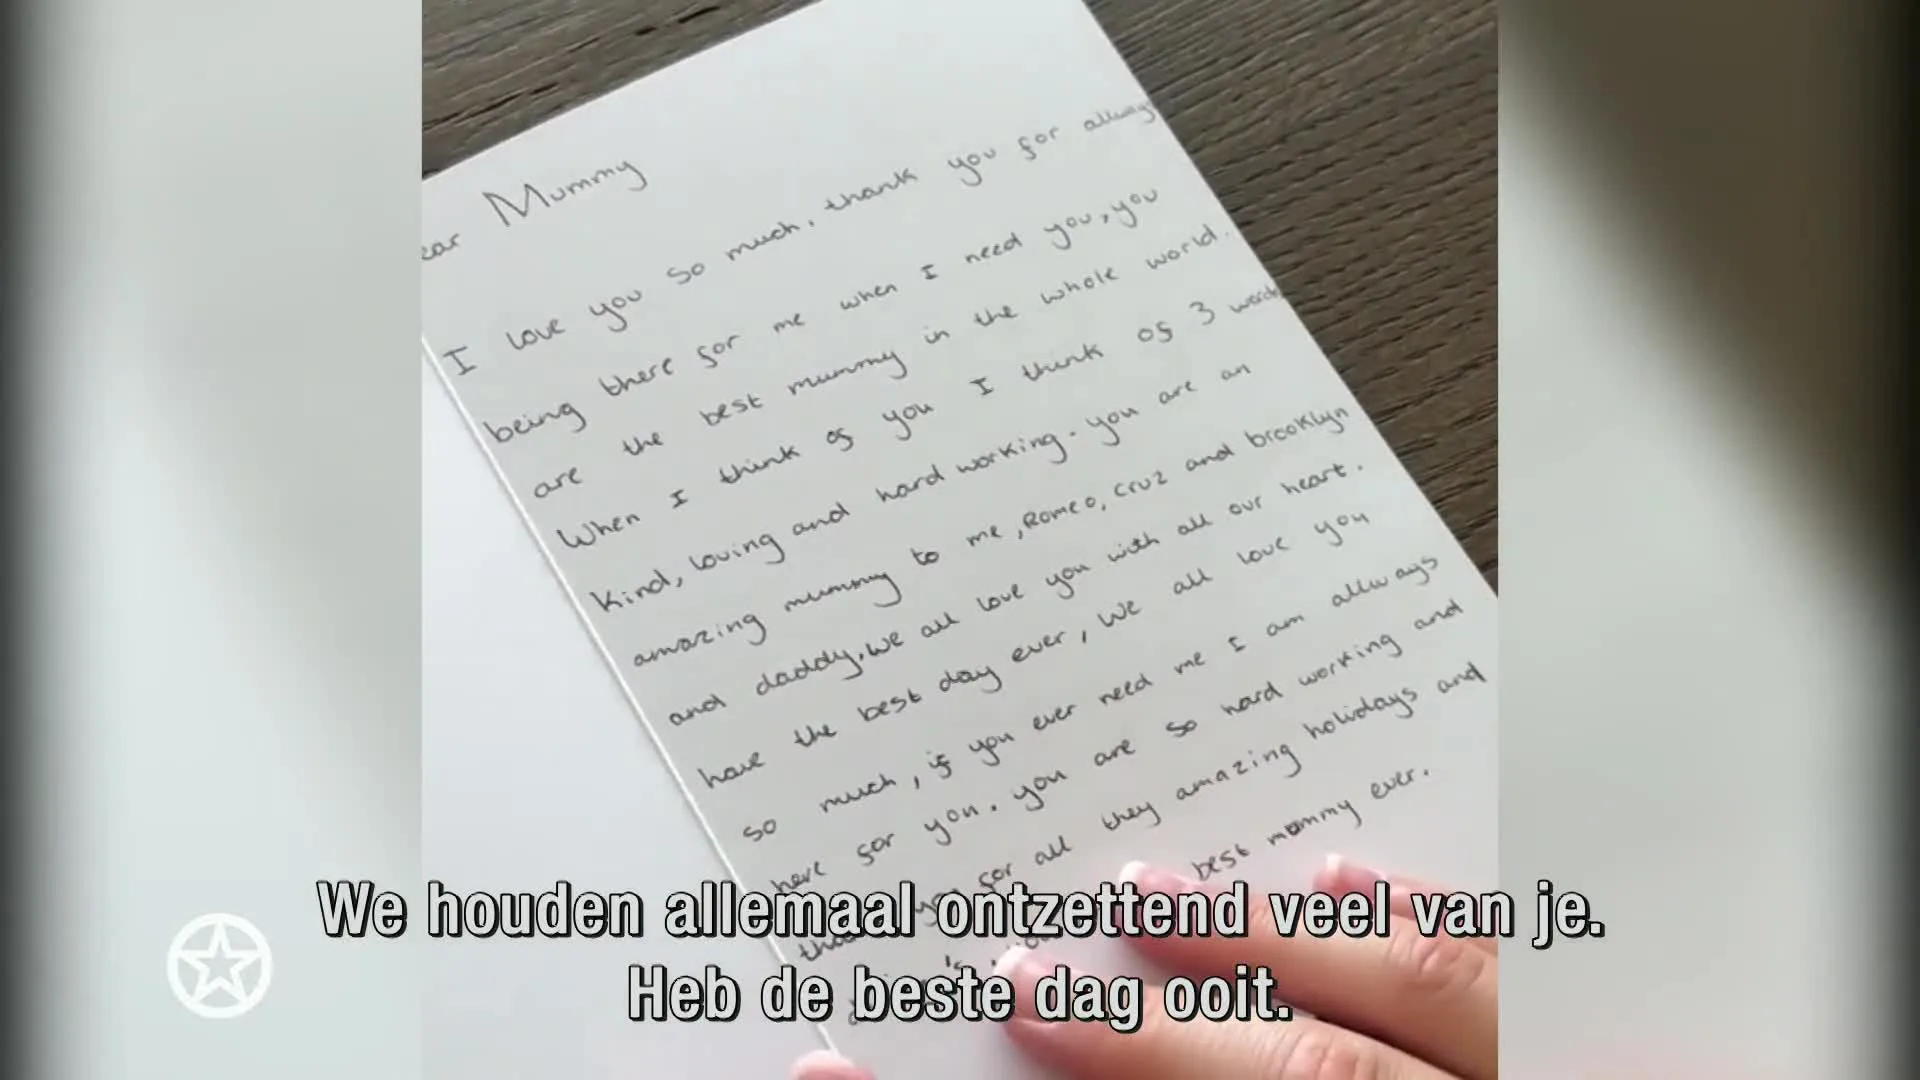 ear Mummy
I love you so much, thank you for allways
being there for me when I need you, you
are the best mummy in the whole world.
When I think of you I think of 3 words
Kind, loving and hard working. you are an
amazing mummy to me, Romeo, Cruz and brooklyn
and daddy. we all love you with all our heart.
have the best day ever, we all love you
so much, if you ever need me I am allways
here for you. you are so hard working and
for all they amazing holidays and
best mummy ever.
We houden allemaal ontzettend veel van je.
Heb de beste dag ooit.